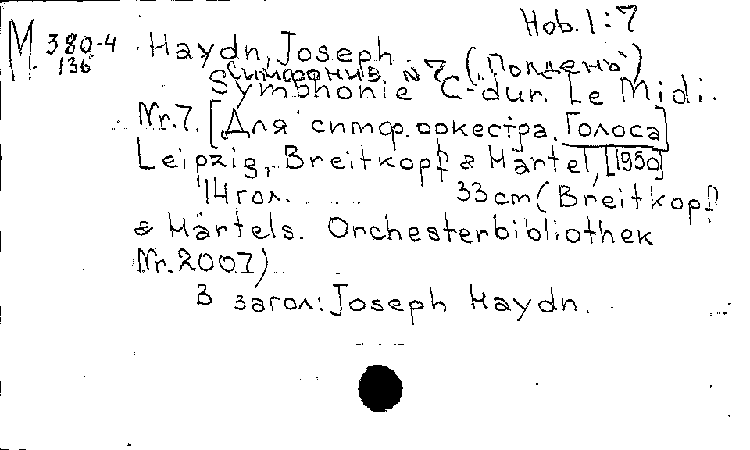 Hob. I:7
M 380-4
136
Haydn, Joseph
Симфония N 7 („Полдень“)
Symphonie C-dur. Le Midi.
Nr. 7. [Для симф. оркестра. Голоса]
Leipzig, Breitkopf & Härtel, [1950]
14 гол. 33 cm (Breitkopf
& Härtels. Orchesterbibliothek
Nr. 2007)
В загол: Joseph Haydn.